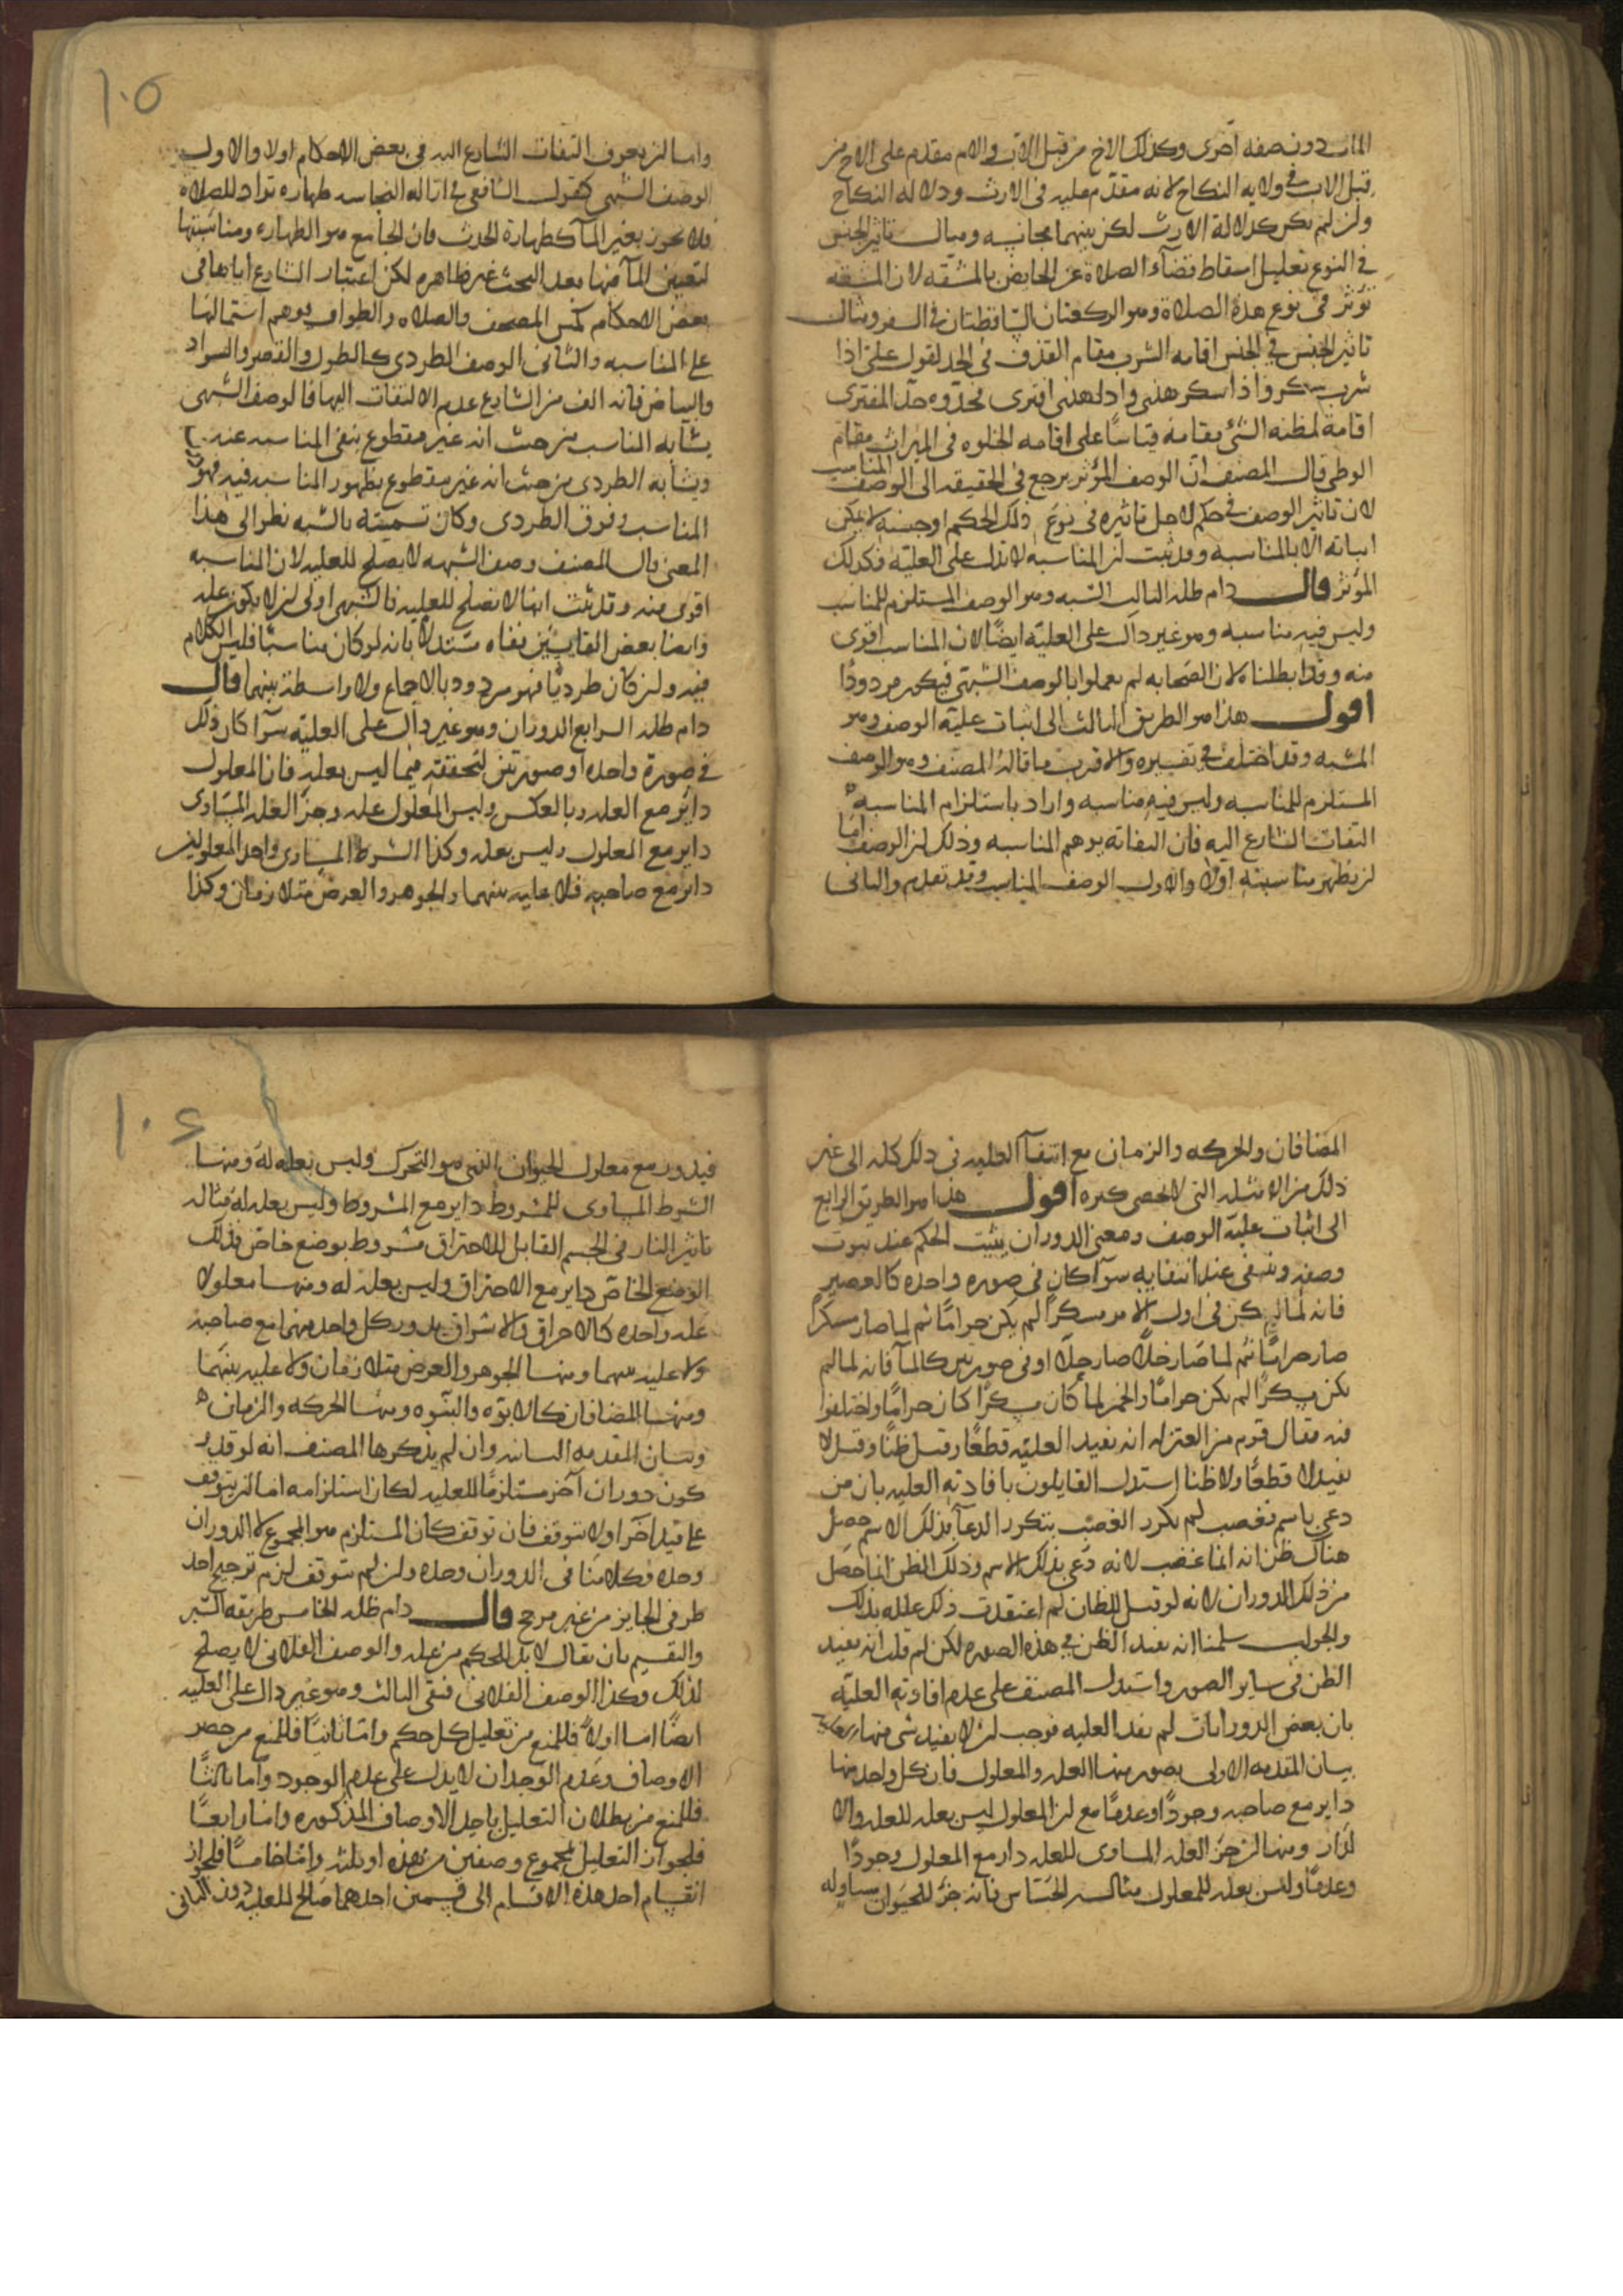 المات دون صفه اخرى وكذلك الاخ من قبل الاب والام مقدم على الاخ من
قبل الاب في ولايه النكاح لانه مقدم عليه في الارث ودلاله النكاح
ولن لم يكن كدلالة الارث لكن بينهما مجانسه ومثال تاثير الجنس
في النوع تعليل اسقاط قضآء الصلاة عن الحايض بالمشقه لان المشقه
تؤثر في نوع هذه الصلاة وهو الركعتان الساقطتان في السفر ومثال
تاثير الجنس في الجنس اقامه الشرب مقام القذف في الحد لقول علي اذا
شرب سكر واذا سكر هذى واذا هذى افترى فحدوه حد المفترى
اقامة لمظنه الشئ مقامه قياسا على اقامه الخلوه في الميراث مقام
الوطى قال المصنف ان الوصف المؤثر يرجع في الحقيقه الى الوصف المناسب
لان تاثير الوصف في حكم لاجل تاثيره في نوع ذلك الحكم او جنسه لا يمكن
اثباته الا بالمناسبه وقد ثبت لن المناسبه لا تدل على العليه فكذلك
المؤثر قال دام ظله الثالث الشبه وهو الوصف المستلزم للمناسب
وليس فيه مناسبه وهو غير دال على العليه ايضا لان المناسب اقوى
منه وقد ابطلناه لان الصحابه لم يعملوا بالوصف الشبهي فيكون مردودا
اقول هذا هو الطريق الثالث الى اثبات علية الوصف وهو
الشبه وقد اختلف في تفسيره والاقرب ما قاله المصنف وهو الوصف
المستلزم للمناسبه وليس فيه مناسبه واراد باستلزام المناسبه
التفات الشارع اليه فان التفاته يوهم المناسبه وذلك لن الوصف اما
لن يظهر مناسبته اولا والاول الوصف المناسب وقد تقدم والثاني
واما لن يعرف التفات الشارع اليه في بعض الاحكام اولا والاول
الوصف الشبهي كقول الشافعي في ازاله النجاسه طهاره تراد للصلاه
فلا تجوز بغير المآ كطهارة الحدث فان الجامع هو الطهاره ومناسبتها
لتعيين المآ فيها بعد البحث غير ظاهره لكن اعتبار الشارع اياها في
بعض الاحكام كمس المصحف والصلاه والطواف يوهم اشتمالها
على المناسبه والثاني الوصف الطردي كالطول والقصر والسواد
والبياض فانه الف من الشارع عدم الالتفات اليها فالوصف الشبهي
يشابه المناسب من حيث انه غير مقطوع بنفي المناسبه عنه
ويشابه الطردي من حيث انه غير مقطوع بظهور المناسبه فيه فهو دون
المناسب وفوق الطردي وكان تسميته بالشبه نظرا الى هذا
المعنى قال المصنف وصف الشبهه لا يصلح للعليه لان المناسبه
اقوى منه وقد ثبت انها لا تصلح للعليه فالشبهي اولى لن لا يكون عله
وايضا بعض القايسين نفاه مستدلا بانه لو كان مناسبا فليس الكلام
فيه ولن كان طرديا فهو مردود بالاجماع ولا واسطة بينهما قال
دام ظله الرابع الدوران وهو غير دال على العليه سوآ كان ذلك
في صورة واحده او صورتين لتحققه فيما ليس بعله فان المعلول
داير مع العله وبالعكس وليس المعلول عله وجز العله المساوى
داير مع المعلول وليس بعله وكذا الشرط المساوى واحد المعلولين
داير مع صاحبه فلا عليه بينهما والجوهر والعرض متلازمان وكذا
المضافان والحركه والزمان مع انتفآ العليه في ذلك كله الى غير
ذلك من الامثله التي لا تحصى كثره اقول هذا هو الطريق الرابع
الى اثبات علية الوصف ومعنى الدوران يثبت الحكم عند ثبوت
وصف وينتفي عند انتفايه سوآ كان في صوره واحده كالعصير
فانه لما لم يكن في اول الامر مسكرا لم يكن حراما ثم لما صار مسكرا
صار حراما ثم لما صار خلا صار حلا او في صورتين كالمآ فانه لما لم
يكن مسكرا لم يكن حراما والخمر لما كان مسكرا كان حراما واختلفوا
فيه فقال قوم من المعتزله انه يفيد العليه قطعا وقيل ظنا وقيل لا
يفيد لا قطعا ولا ظنا استدل القايلون بافادته العليه بان من
دعي باسم فغضب ثم تكرر الغضب بتكرر الدعآ بذلك الاسم حصل
هناك ظن انه انما غضب لانه دعي بذلك الاسم وذلك الظن انما حصل
من ذلك الدوران لانه لو قيل للظان لم اعتقدت ذلك علله بذلك
والجواب سلمنا انه يفيد الظن في هذه الصوره لكن لم قلت انه يفيد
الظن في ساير الصور واستدل المصنف على عدم افادته العليه
بان بعض الدورانات لم يفد العليه فوجب لن لا يفيد شي منها
بيان المقدمه الاولى بصور منها العله والمعلول فان كل واحد منها
داير مع صاحبه وجودا وعدما مع لن المعلول ليس بعله للعله والا
لدار ومنها لن جز العله المساوى للعله دار مع المعلول وجودا
وعدما وليس بعله للمعلول مثاله الحساس فانه جز للحيوان مساو له
فيدور مع معلول الحيوان الذي هو التحرك وليس بعله له ومنها
الشرط المساوى للمشروط داير مع المشروط وليس بعله له مثاله
تاثير النار في الجسم القابل للاحتراق مشروط بوضع خاص فذلك
الوضع الخاص داير مع الاحتراق وليس بعله له ومنها معلولا
عله واحده كالاحراق والاشراق يدور كل واحد منهما مع صاحبه
ولا عليه بينهما ومنها الجوهر والعرض متلازمان ولا عليه بينهما
ومنها المضافان كالابوه والبنوه ومنها الحركه والزمان
وبيان المقدمه الثانيه وان لم يذكرها المصنف انه لو قدر
كون دوران آخر مستلزما للعليه لكان استلزامه اما لن يتوقف
على قيد آخر او لا يتوقف فان توقف كان المستلزم هو المجموع لا الدوران
وحده وكلامنا في الدوران وحده ولن لم يتوقف لزم ترجيح احد
طرفي الجايز من غير مرجح قال دام ظله الخامس طريقه السبر
والتقسيم بان يقال لا بد للحكم من عله والوصف الفلاني لا يصلح
لذلك وكذا الوصف الفلاني فبقي الثالث وهو غير دال على العليه
ايضا اما اولا فللمنع من تعليل كل حكم واما ثانيا فللمنع من حصر
الاوصاف وعدم الوجدان لا يدل على عدم الوجود واما ثالثا
فللمنع من بطلان التعليل باحد الاوصاف المذكوره واما رابعا
فلجواز التعليل بمجموع وصفين من هذه او ثلثه واما خامسا فلجواز
انقسام احد هذه الاقسام الى قسمين احدهما صالح للعليه دون الثاني
١٠٥
١٠٦